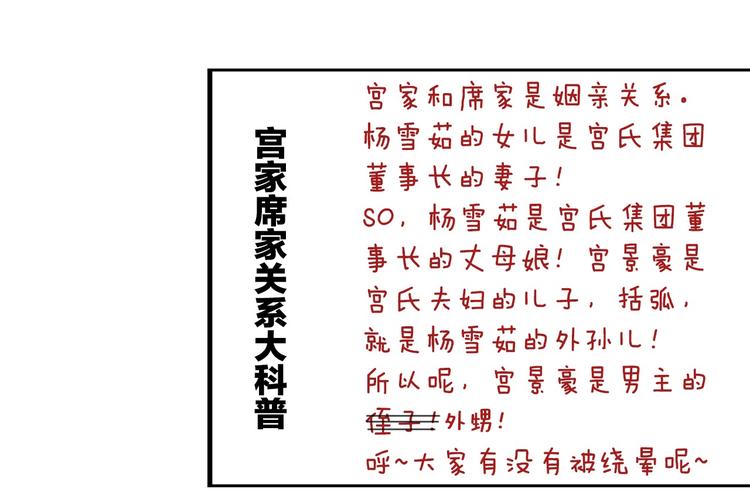 宫家席家关系大科普
宫家和席家是姻亲关系.
杨雪茹的女儿是宫氏集团
董事长的妻子!
SO, 杨雪茹是宫氏集团董
事长的丈母娘! 宫景豪是
宫氏夫妇的儿子, 括弧,
就是杨雪茹的外孙儿!
所以呢, 宫景豪是男主的
侄子!外甥!
呼~大家有没有被绕晕呢~